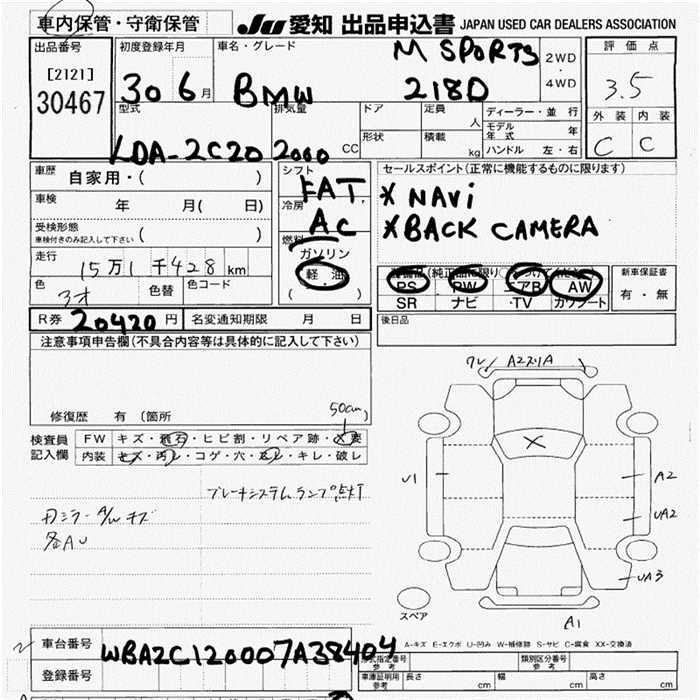 車内保管・守衛保管
JU 愛知 出品申込書 JAPAN USED CAR DEALERS ASSOCIATION
出品番号
[2121]
30467
初度登録年月
30 6 月
車名・グレード
BMW
M SPORTS
218D
2WD
・
4WD
評価点
3.5
外装 内装
C C
型式
LDA-2C20
排気量
2000 CC
ドア
形状
定員
人
積載
kg
ディーラー・並行
モデル年式 年
ハンドル 左・右
車歴
自家用・( )
車検
年 月( 日)
受検形態
車検付きのみ記入して下さい
( )
走行
15万1千428km
色
色替
色コード
シフト
FAT
冷房
AC
燃料
ガソリン
軽油
( )
セールスポイント(正常に機能するものに限ります)
* NAVi
* BACK CAMERA
PS PW エアB AW
SR ナビ ・TV カワシート
新車保証書
有・無
R券 20420 円 名変通知期限 月 日
後日品
注意事項申告欄(不具合内容等は具体的に記入して下さい)
修復歴 有(箇所
50cm
検査員
記入欄
FW キズ・飛石・ヒビ割・リペア跡・
内装 キズ・汚レ・コゲ・穴・・キレ・破レ
ブレーキシステムランプ点灯
A/Wキズ
各AU
ワレ
A2スリA
U1
A2
UA2
UA3
A1
スペア
A-キズ E-エクボ U-凹み W-補修跡 S-サビ C-腐食 XX-交換済
車台番号 WBA2C120007A38404
登録番号
型式指定番号
参考
類別区分番号
参考
車庫証明用
参考
長さ cm 幅 cm 高さ cm